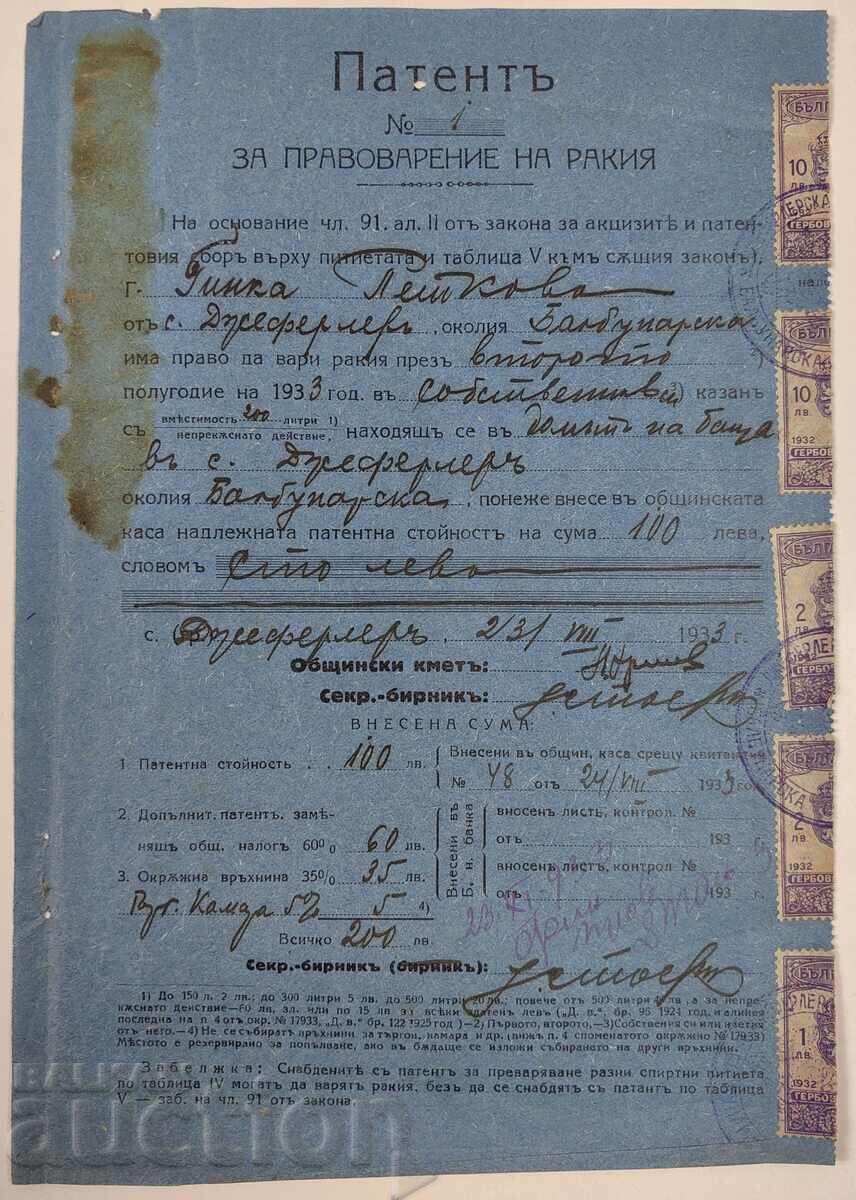 Патентъ
№ 1
ЗА ПРАВОВАРЕНИЕ НА РАКИЯ
На основание чл. 91. ал. II отъ закона за акцизитѣ и патен-
товия сборъ върху питиетата и таблица V къмъ сѫщия законъ),
Г· Гинка Петкова
отъ с. Джеферлеръ, околия Балбунарска
има право да вари ракия презъ второто
полугодие на 1933 год. въ собственъ си 3) казанъ
съ вмѣстимость 200 литри 1)
непрекѫснато действие, находящъ се въ домътъ на баща
въ с. Джеферлеръ
околия Балбунарска, понеже внесе въ общинската
каса надлежната патентна стойность на сума 100 лева,
словомъ Сто лева
с. Джеферлеръ, 23/VIII 1933 г.
Общински кметъ:
Секр.-бирникъ:
ВНЕСЕНА СУМА:
1 Патентна стойность . . 100 лв.
2. Допълнит. патентъ. замѣ-
нящъ общ. налогъ 60% 60 лв.
3. Окрѫжна връхнина 35% 35 лв.
5% 5 4)
Всичко 200 лв.
Внесени въ общин, каса срещу квитанция
№ 48 отъ 24/VIII 1933 год.
Внесени въ
Б. н. банка
вносенъ листъ, контрол. №
отъ 193 г.
вносенъ листъ, контрол. №
отъ 193 г.
Секр.-бирникъ (бирникъ):
1) До 150 л. 2 лв.; до 300 литри 5 лв, до 500 литри 20 лв.; повече от 500 литри лв, а за непре-
кѫснато действие
последна на п. 4 отъ окр. № 17933, „Д. в.“ бр. 122 1925 год) —2) Първото, второто,—3) Собствения си или наетия
отъ него.—4) Не се събиратъ връхнини за търгов, камара и др. (вижъ п. 4 споменатото окрѫжно № 17933)
Мѣстото е резервирано за попълване, ако въ бѫдаще се възложи събирането на други връхнини.
Забележка: Снабденитѣ съ патентъ за преваряване разни спиртни питиета
по таблица IV могатъ да варятъ ракия, безъ да се снабдятъ съ патантъ по таблица
V — заб. на чл. 91 отъ закона.
10
ЛВ.
ГЕРБОВ
10
ЛВ.
1932
ГЕРБОВ
2
ЛВ.
ГЕРБОВ
2
ЛВ.
1932
ГЕРБОВ
1
ЛВ.
1932
ГЕРБОВ
auction